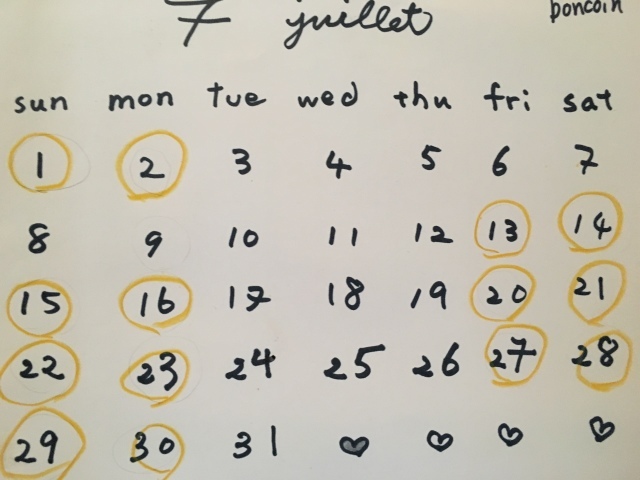 7 juillet
poncoin
sun mon tue wed thu fri sat
1 2 3 4 5 6 7
8 9 10 11 12 13 14
15 16 17 18 19 20 21
22 23 24 25 26 27 28
29 30 31